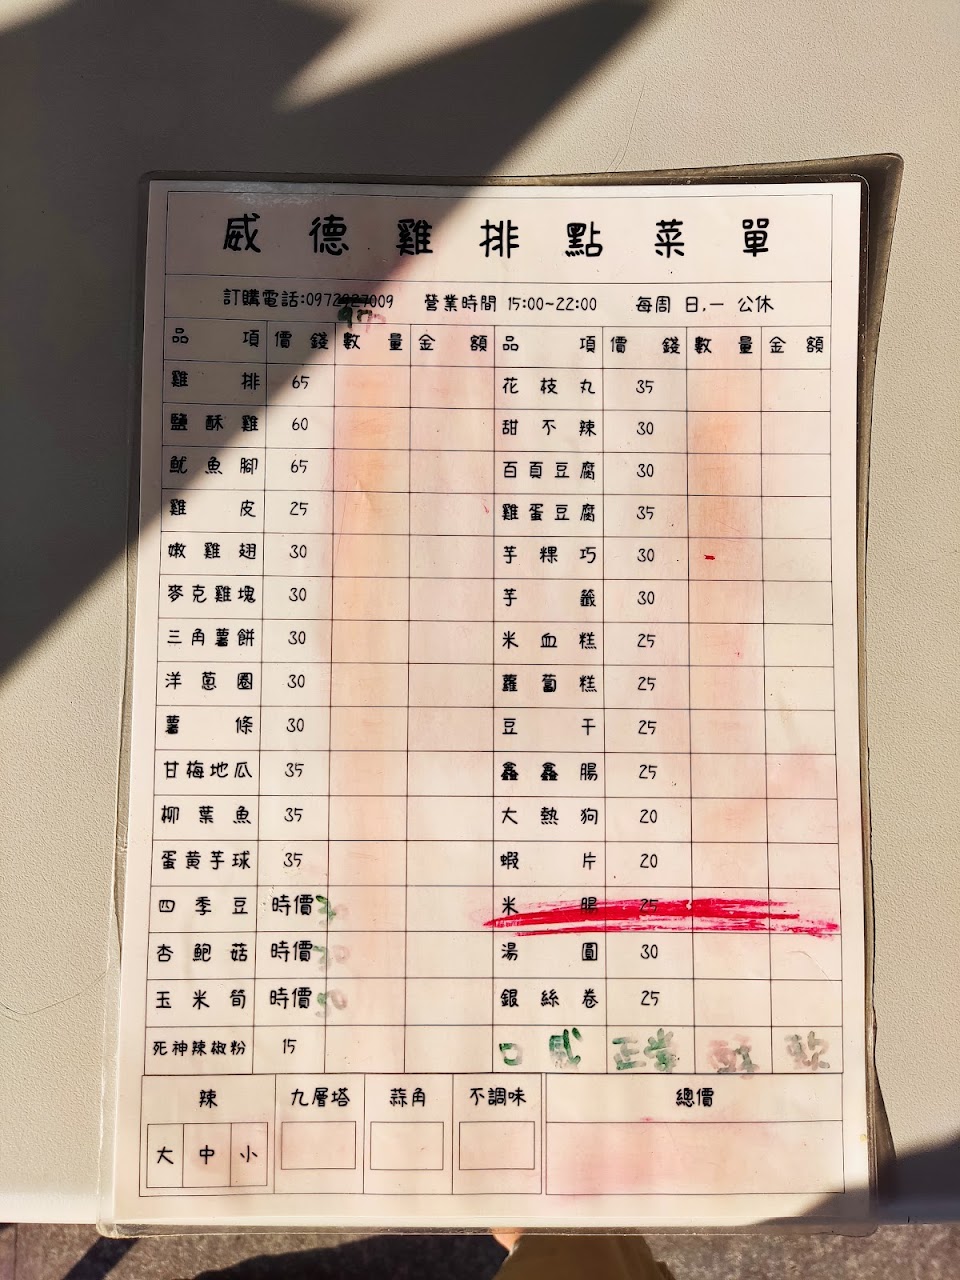 威德雞排點菜單
訂購電話:0972927009 營業時間 15:00~22:00 每周 日,一 公休
品項 價錢 數量 金額 品項 價錢 數量 金額
雞排 65 花枝丸 35
鹽酥雞 60 甜不辣 30
魷魚腳 65 百頁豆腐 30
雞皮 25 雞蛋豆腐 35
嫩雞翅 30 芋粿巧 30
麥克雞塊 30 芋籤 30
三角薯餅 30 米血糕 25
洋蔥圈 30 蘿蔔糕 25
薯條 30 豆干 25
甘梅地瓜 35 鑫鑫腸 25
柳葉魚 35 大熱狗 20
蛋黃芋球 35 蝦片 20
四季豆 時價 米腸 25
杏鮑菇 時價 湯圓 30
玉米筍 時價 銀絲卷 25
死神辣椒粉 15 口感 正常 酥 軟
辣 九層塔 蒜角 不調味 總價
大 中 小